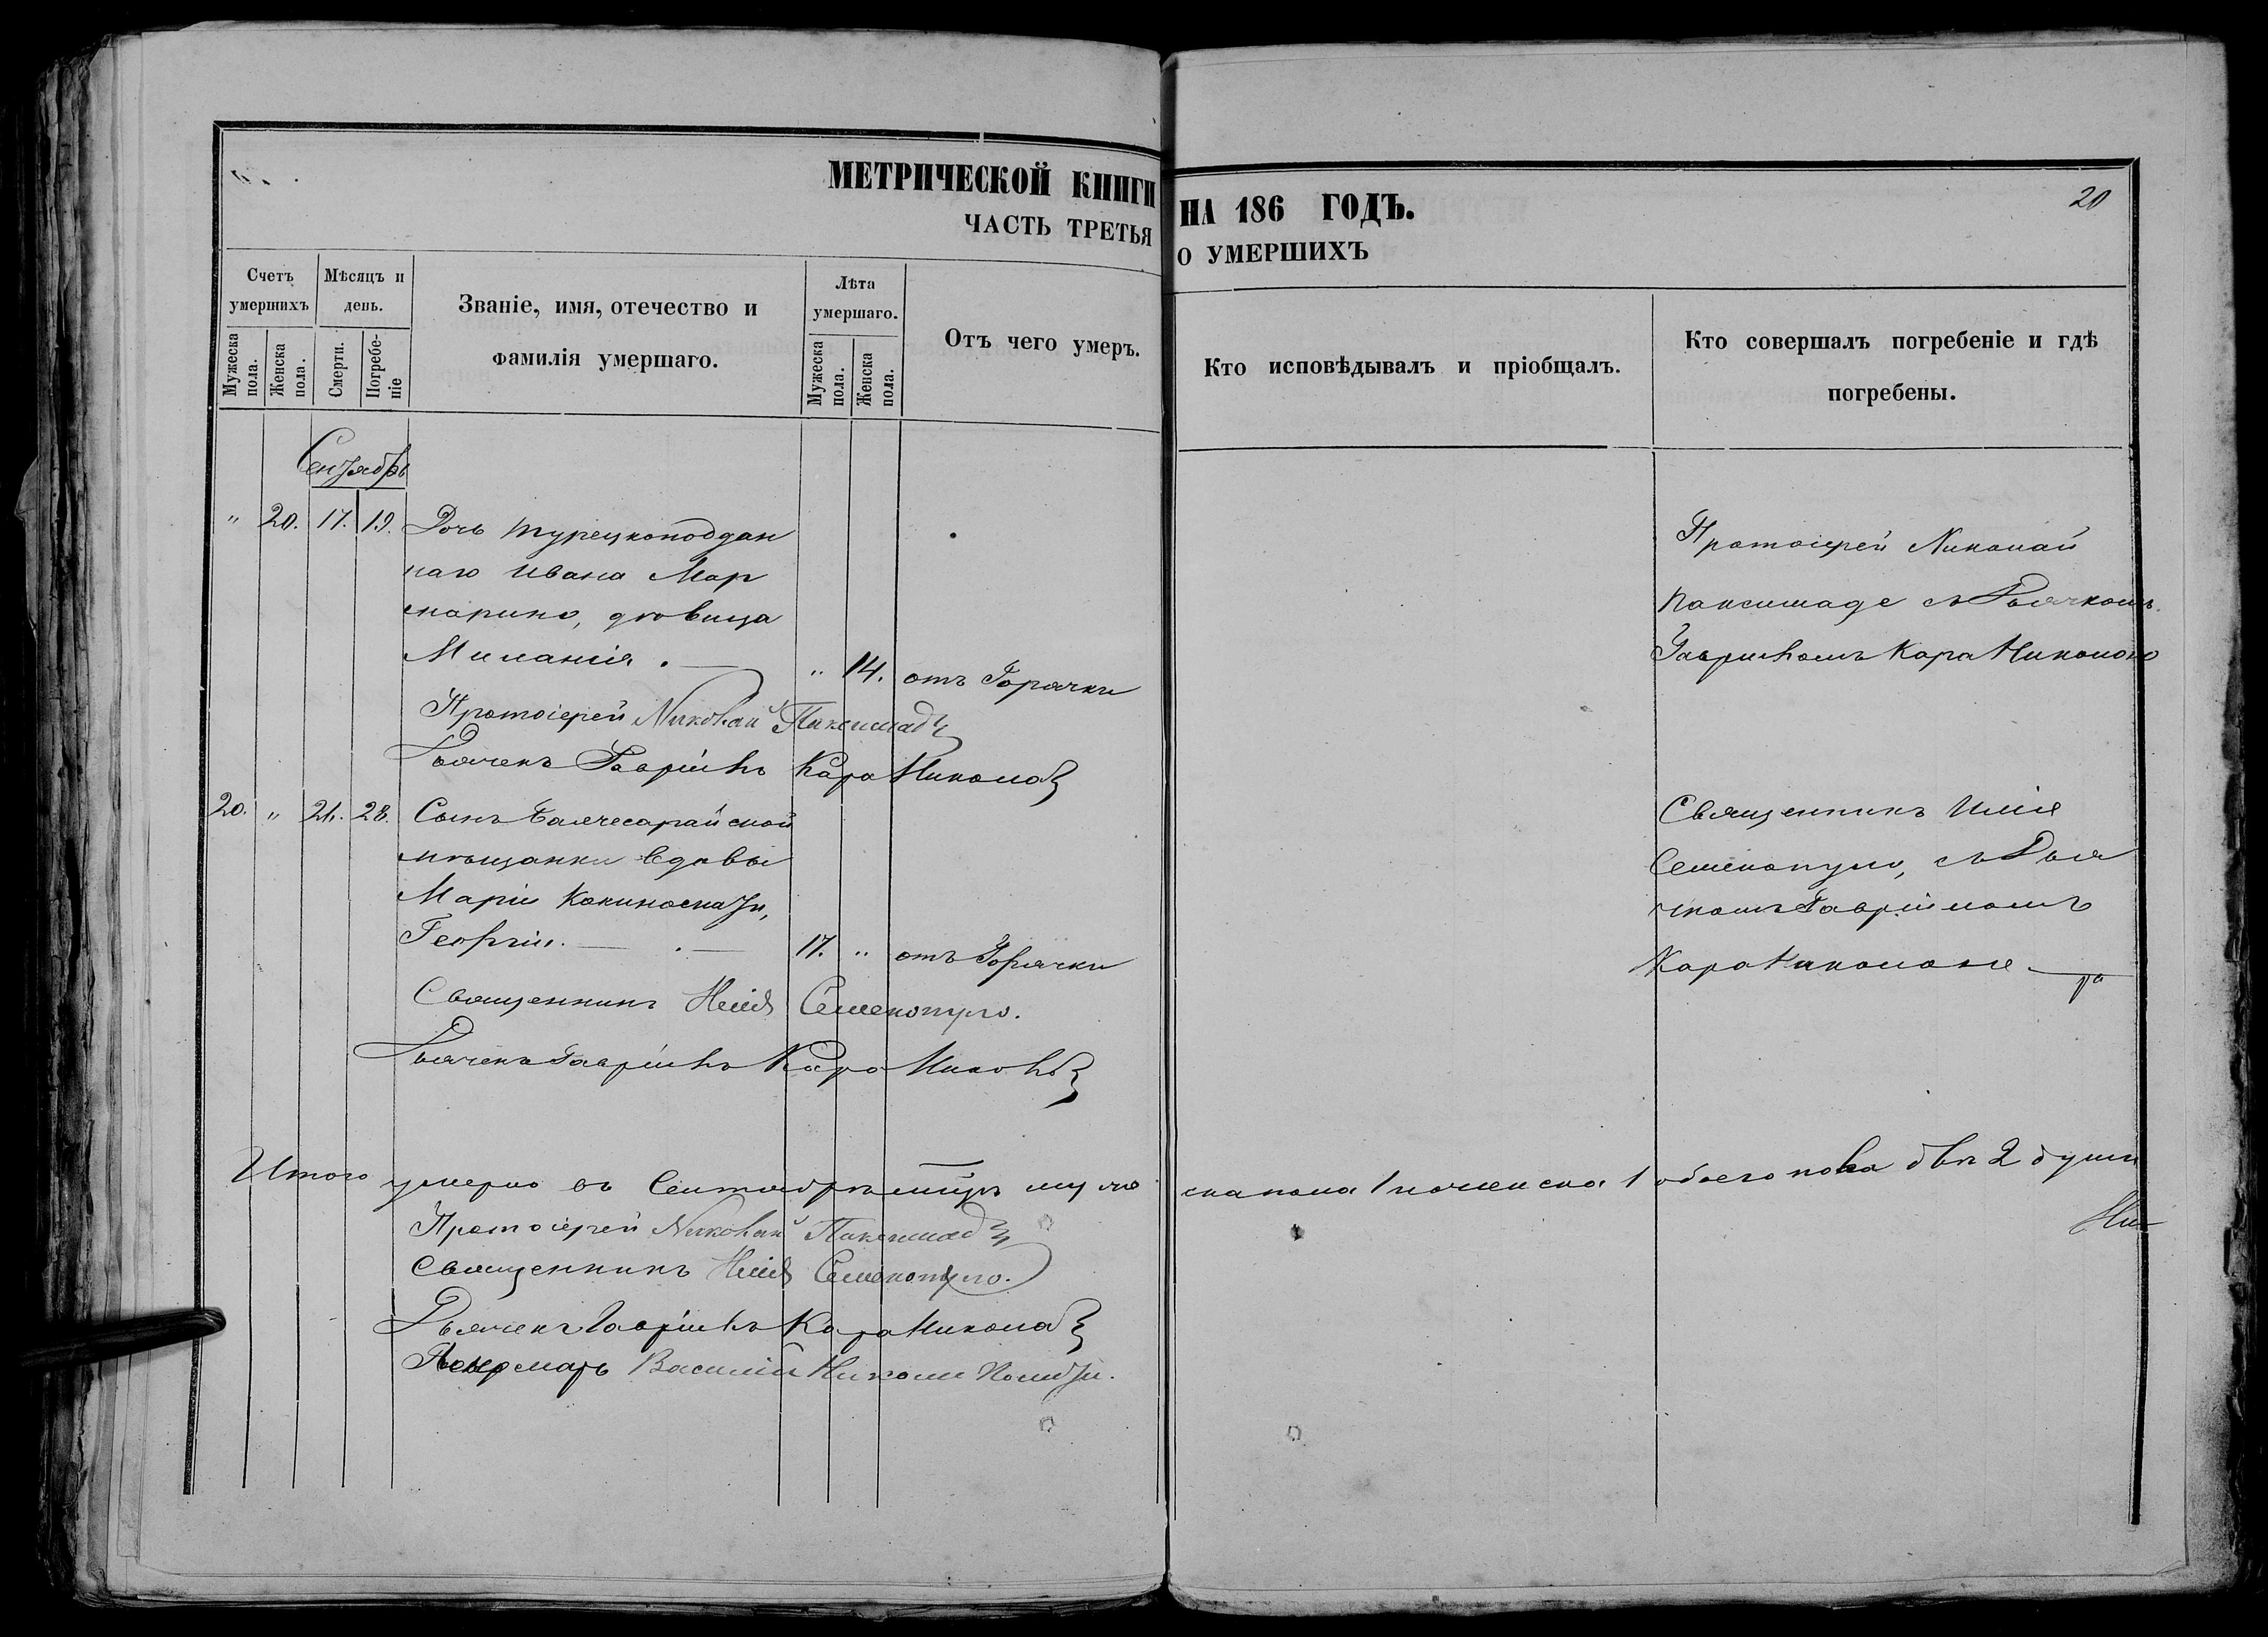 МЕТРИЧЕСКОЙ КНИГИ НА 186 ГОДЪ.
20
ЧАСТЬ ТРЕТЬЯ О УМЕРШИХЪ
Счетъ умершихъ
Мужеска пола.
Женска пола.
Мѣсяцъ и день.
Смерти.
Погребеніе
Званіе, имя, отечество и фамилія умершаго.
Лѣта умершаго.
Мужеска пола.
Женска пола.
Отъ чего умеръ.
Кто исповѣдывалъ и пріобщалъ.
Кто совершалъ погребеніе и гдѣ погребены.
Сентябрь
" 20. 17. 19. Дочь турецкоподдан
наго Ивана Мар
марино, дѣвица
Миланія. " 14. отъ Горячки
Протоіерей Николай
Паксимаде съ Дьячкомъ
Гавріиломъ Кара Николою
Протоіерей Николай Паксимадъ
Дьячекъ Гавріилъ Кара Никола
20. " 26. 28. Сынъ Бахчесарайской
мѣщанки вдовы
Маріи
Георгій. 17. " отъ Горячки
Священникъ Илія
Семенопуло, съ Дья
чкомъ Гавріиломъ
Кара Николою
Священникъ Илія Семенопуло.
Дьячекъ Гавріилъ Кара Никола
Итого умерло въ Сентябрѣ мцѣ муже ска пола 1 и женска 1 обоего пола двѣ 2 души
Протоіерей Николай Паксимадъ
Священникъ Илія Семенопуло.
Дьячекъ Гавріилъ Кара Никола
Пономарь Василій Николи